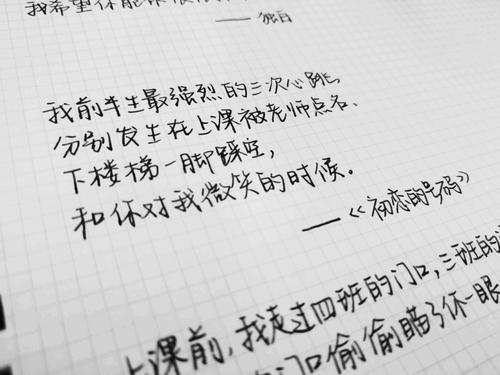 我希望你能
—— 独白
我前半生最强烈的三次心跳,
分别发生在上课被老师点名、
下楼梯一脚踩空,
和你对我微笑的时候.
——《初恋的号码》
上课前,我走过四班的门口,三班的
门口偷偷瞄了你一眼